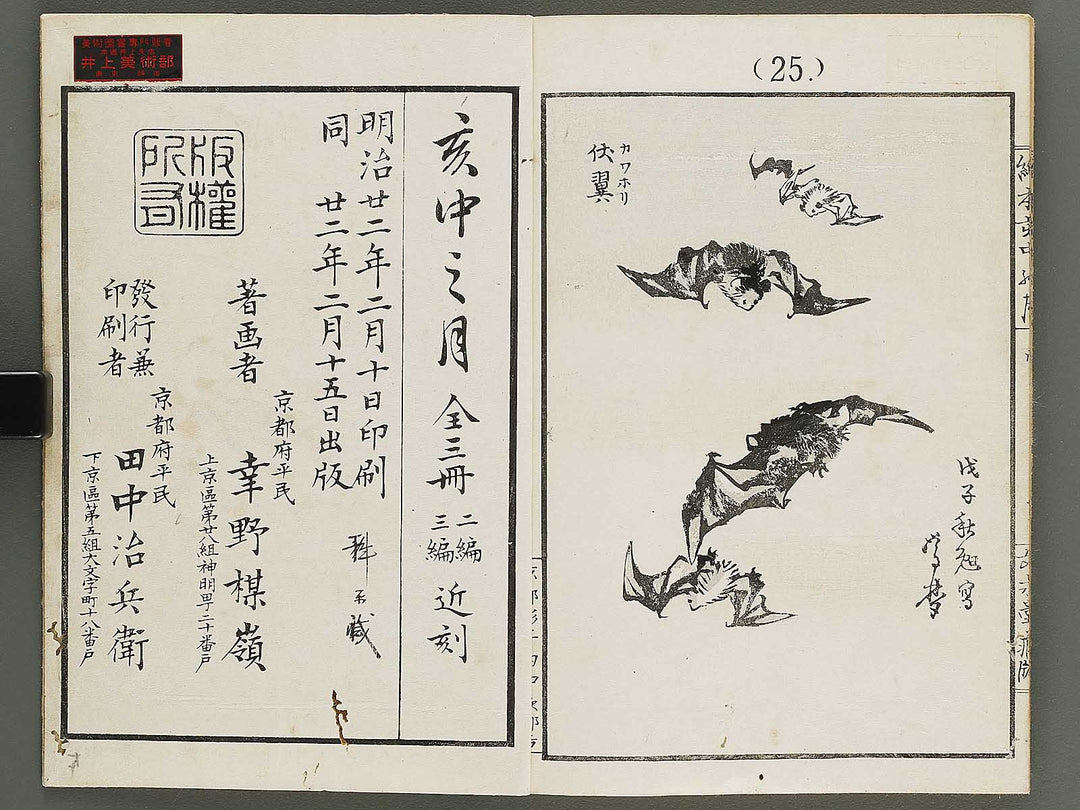 (25.)
カワホリ
伏翼
戊子秋勉写
亥中之月 全三冊 二編 三編 近刻
明治廿二年二月十日印刷
同 廿二年二月十五日出版
著画者
京都府平民
幸野楳嶺
上京區第廿八組神明町二十番戸
發行兼
印刷者
京都府平民
田中治兵衛
下京區第五組大文字町十八番戸
版權
所有
美術圖書専門販賣
井上美術部